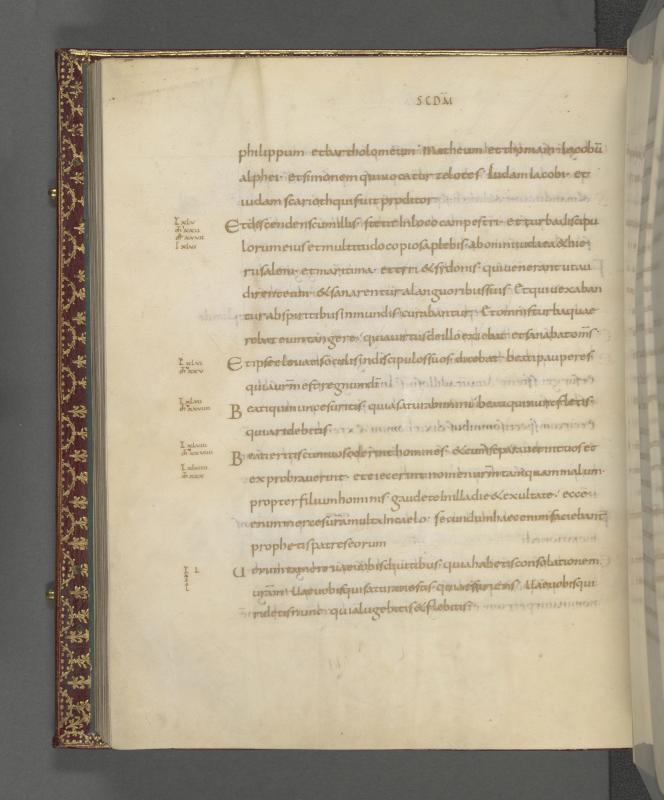 SCDM̄
philippum · et bartholomeum · Matheum et thomam · Iacobū
alphei · et simonem qui uocatur zelotes · Iudam iacobi · et
iudam scarioth qui fuit proditor
Et descendens cum illis · stetit in loco campestri · et turba discipu
lorum eius et multitudo copiosa plebis · ab omni iudaea & hie
rusalem · et maritima · et tyri & sydonis · qui uenerant ut au
dirent eum · & sanarentur a languoribus suis · Et qui uexaban
tur a spiritibus inmundis · curabantur · Et omnis turba quae
rebat eum tangere · quia uirtus de illo exiebat · et sanabat om̄s ·
Et ipse eleuatis oculis in discipulos suos · dicebat · beati pauperes
quia ur̄m est regnum d̄i
Beati qui nunc esuritis · quia saturabimini · beati qui nunc fletis ·
quia ridebitis
Beati eritis cum uos oderint homines · & cum separauerint uos et
exprobrauerint · et eiecerint nomen ur̄m tamquam malum ·
propter filium hominis · gaudete in illa die & exultate · ecce
enim merces ur̄a multa in caelo · secundum haec enim faciebant
prophetis patres eorum
Uerumtamen uae uobis diuitibus · quia habetis consolationem
ur̄am · Uae uobis qui saturati estis · quia esurietis · Uae uobis qui
ridetis nunc · quia lugebitis & flebitis ·